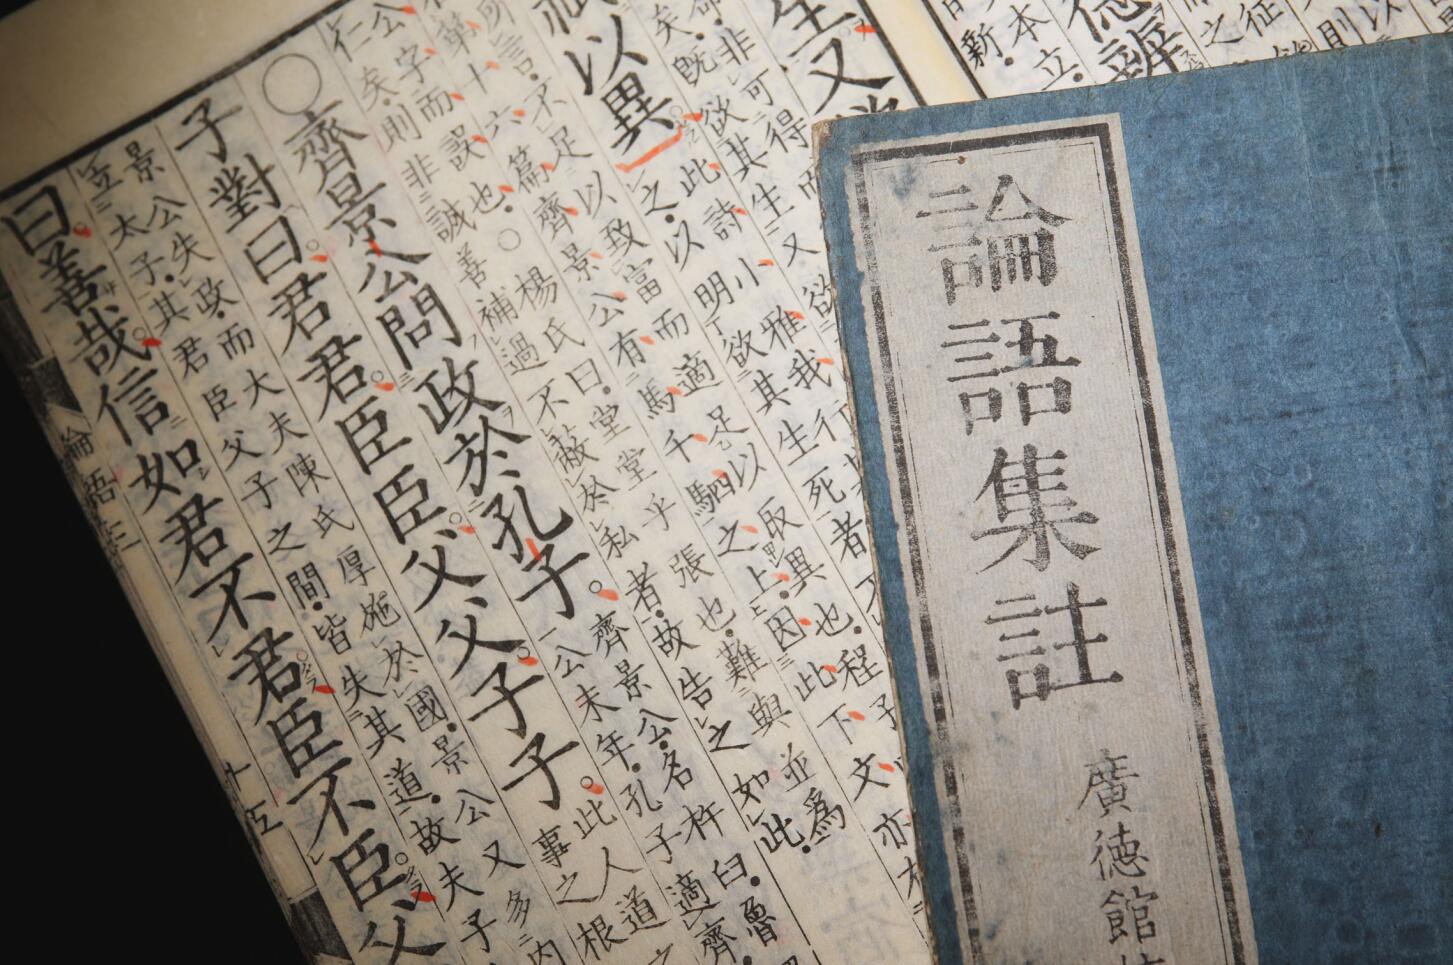 新本立
徳辨
之征
則以
論語集註
廣徳館
生又
命非可得生
矣既欲其
祇以異
之此詩小雅我行
以明欲其生死者
程子
所言不足以致富而適足以取異也
第十六篇齊景公有馬千駟之上因此下文亦
公字而誤也○楊氏曰堂堂乎張也難與並爲
仁矣則非誠善補過不蔽於私者故告之如此
○齊景公問政於孔子齊景公名杵臼魯
公末年孔子適齊
子對曰君君臣臣父父子子此人道
事之根
景公失政而大夫陳氏厚施於國景公又多內
立太子其君臣父子之間皆失其道故夫子
曰善哉信如君不君臣不臣父
論語